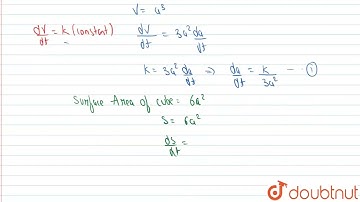 V = a³
dV/dt = k (constant) dV/dt = 3a² da/dt
k = 3a² da/dt ⇒ da/dt = k/3a² -- ①
Surface Area of cube = 6a²
S = 6a²
ds/dt =
doubtnut